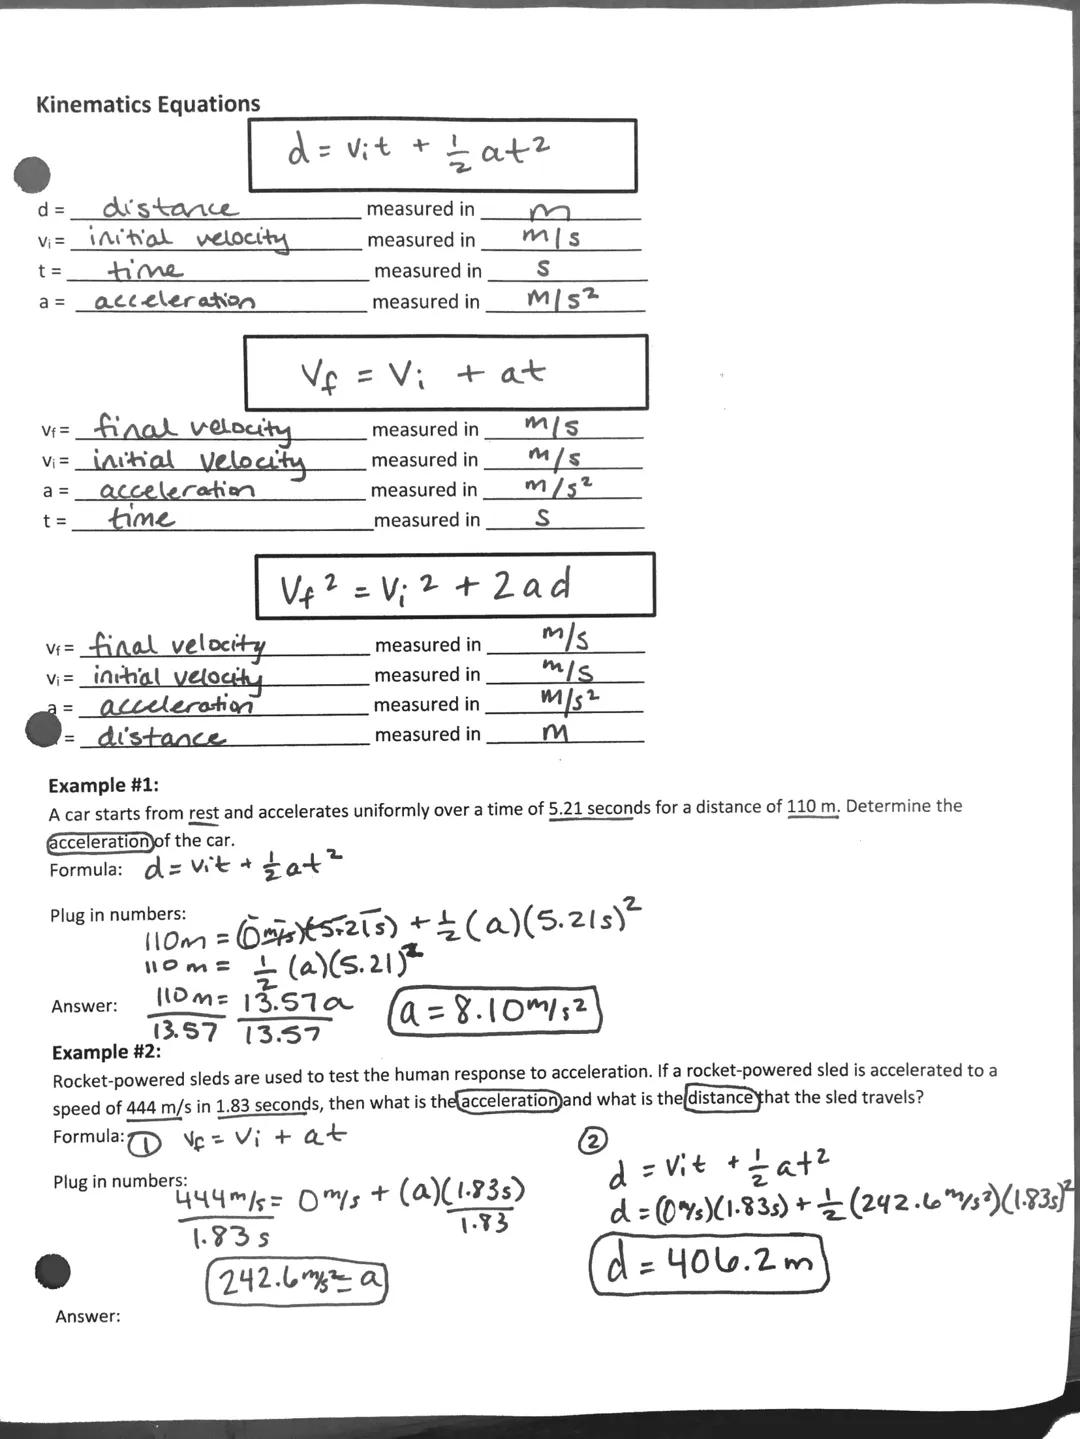 Kinematics Equations
d = vit + 1/2 at²
d = distance measured in m
vi = initial velocity measured in m/s
t = time measured in s
a = acceleration measured in m/s²
Vf = Vi + at
Vf = final velocity measured in m/s
Vi = initial velocity measured in m/s
a = acceleration measured in m/s²
t = time measured in s
Vf² = Vi² + 2ad
Vf = final velocity measured in m/s
Vi = initial velocity measured in m/s
a = acceleration measured in m/s²
= distance measured in m
Example #1:
A car starts from rest and accelerates uniformly over a time of 5.21 seconds for a distance of 110 m. Determine the
acceleration of the car.
Formula: d = vit + 1/2 at²
Plug in numbers:
110m = (0 m/s)(5.21s) + 1/2 (a)(5.21s)²
110 m = 1/2 (a)(5.21)²
Answer: 110m = 13.57a a = 8.10 m/s²
13.57 13.57
Example #2:
Rocket-powered sleds are used to test the human response to acceleration. If a rocket-powered sled is accelerated to a
speed of 444 m/s in 1.83 seconds, then what is the acceleration and what is the distance that the sled travels?
Formula: ① Vf = Vi + at
Plug in numbers:
444m/s = 0 m/s + (a)(1.83s)
1.83 s 1.83
242.6 m/s² = a
②
d = vit + 1/2 at²
d = (0 m/s)(1.83s) + 1/2 (242.6 m/s²)(1.83s)²
d = 406.2 m
Answer: